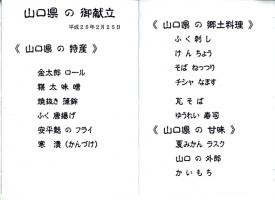 山口県 の 御献立
平成25年2月25日
《 山口県 の 特産 》
金太郎 ロール
寝太 味噌
焼抜き 蒲鉾
ふく 唐揚げ
安平麩 の フライ
寒漬（かんづけ）
《 山口県 の 郷土料理 》
ふく刺し
けんちょう
そば ねっつり
チシャ なます
瓦そば
ゆうれい 寿司
《 山口県 の 甘味 》
夏みかん ラスク
山口 の 外郎
かいもち